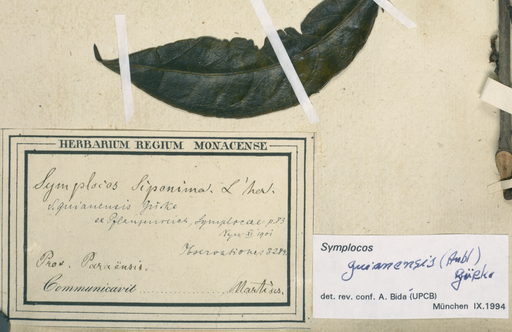 HERBARIUM REGIUM MONACENSE
Symplocos Siponima. L'her.
s. guianensis Gürke
ex Pflanzenreich, Symplocac. p. 73
1901
Observationes 3284.
Prov. Paraënsis.
Communicavit Martius.
Symplocos
guianensis (Aubl)
Gürke
det. rev. conf. A. Bida (UPCB)
München IX.1994